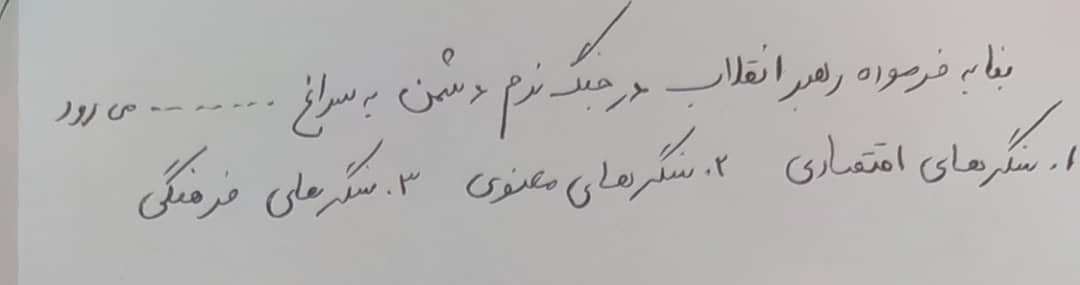 بنا به فرموده رهبر انقلاب در جنگ نرم دشمن به سراغ ........ می رود
۱. سنگرهای اقتصادی ۲. سنگرهای معنوی ۳. سنگرهای فرهنگی